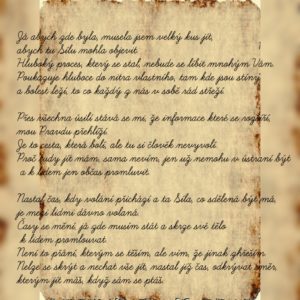 Já abych zde byla, musela jsem velký kus jít,
abych tu Sílu mohla objevit.
Hluboký proces, který se stal, nebude se líbit mnohým Vám.
Poukazuje hluboce do nitra vlastního, tam kde jsou stíny
a bolest leží, to co každý z nás v sobě rád střeží.
Přes všechna úsilí stává se mi, že informace které se rozšíří,
mou Pravdu přehlíží.
Je to cesta, která bolí, ale tu si člověk nevyvolí.
Proč tudy jít mám, sama nevím, jen už nemohu v ústraní být
a k lidem jen občas promluvit.
Nastal čas, kdy volání přichází a ta Síla, co sdělená být má,
je mezi lidmi dávno volaná.
Časy se mění, já zde musím stát a skrze své tělo
k lidem promlouvat.
Není to přání, kterým se těším, ale vím, že jinak ghřeším.
Nelze se skrýt a nechat vše jít, nastal již čas, odkrývat směr,
kterým jít máš, když sám se ptáš.